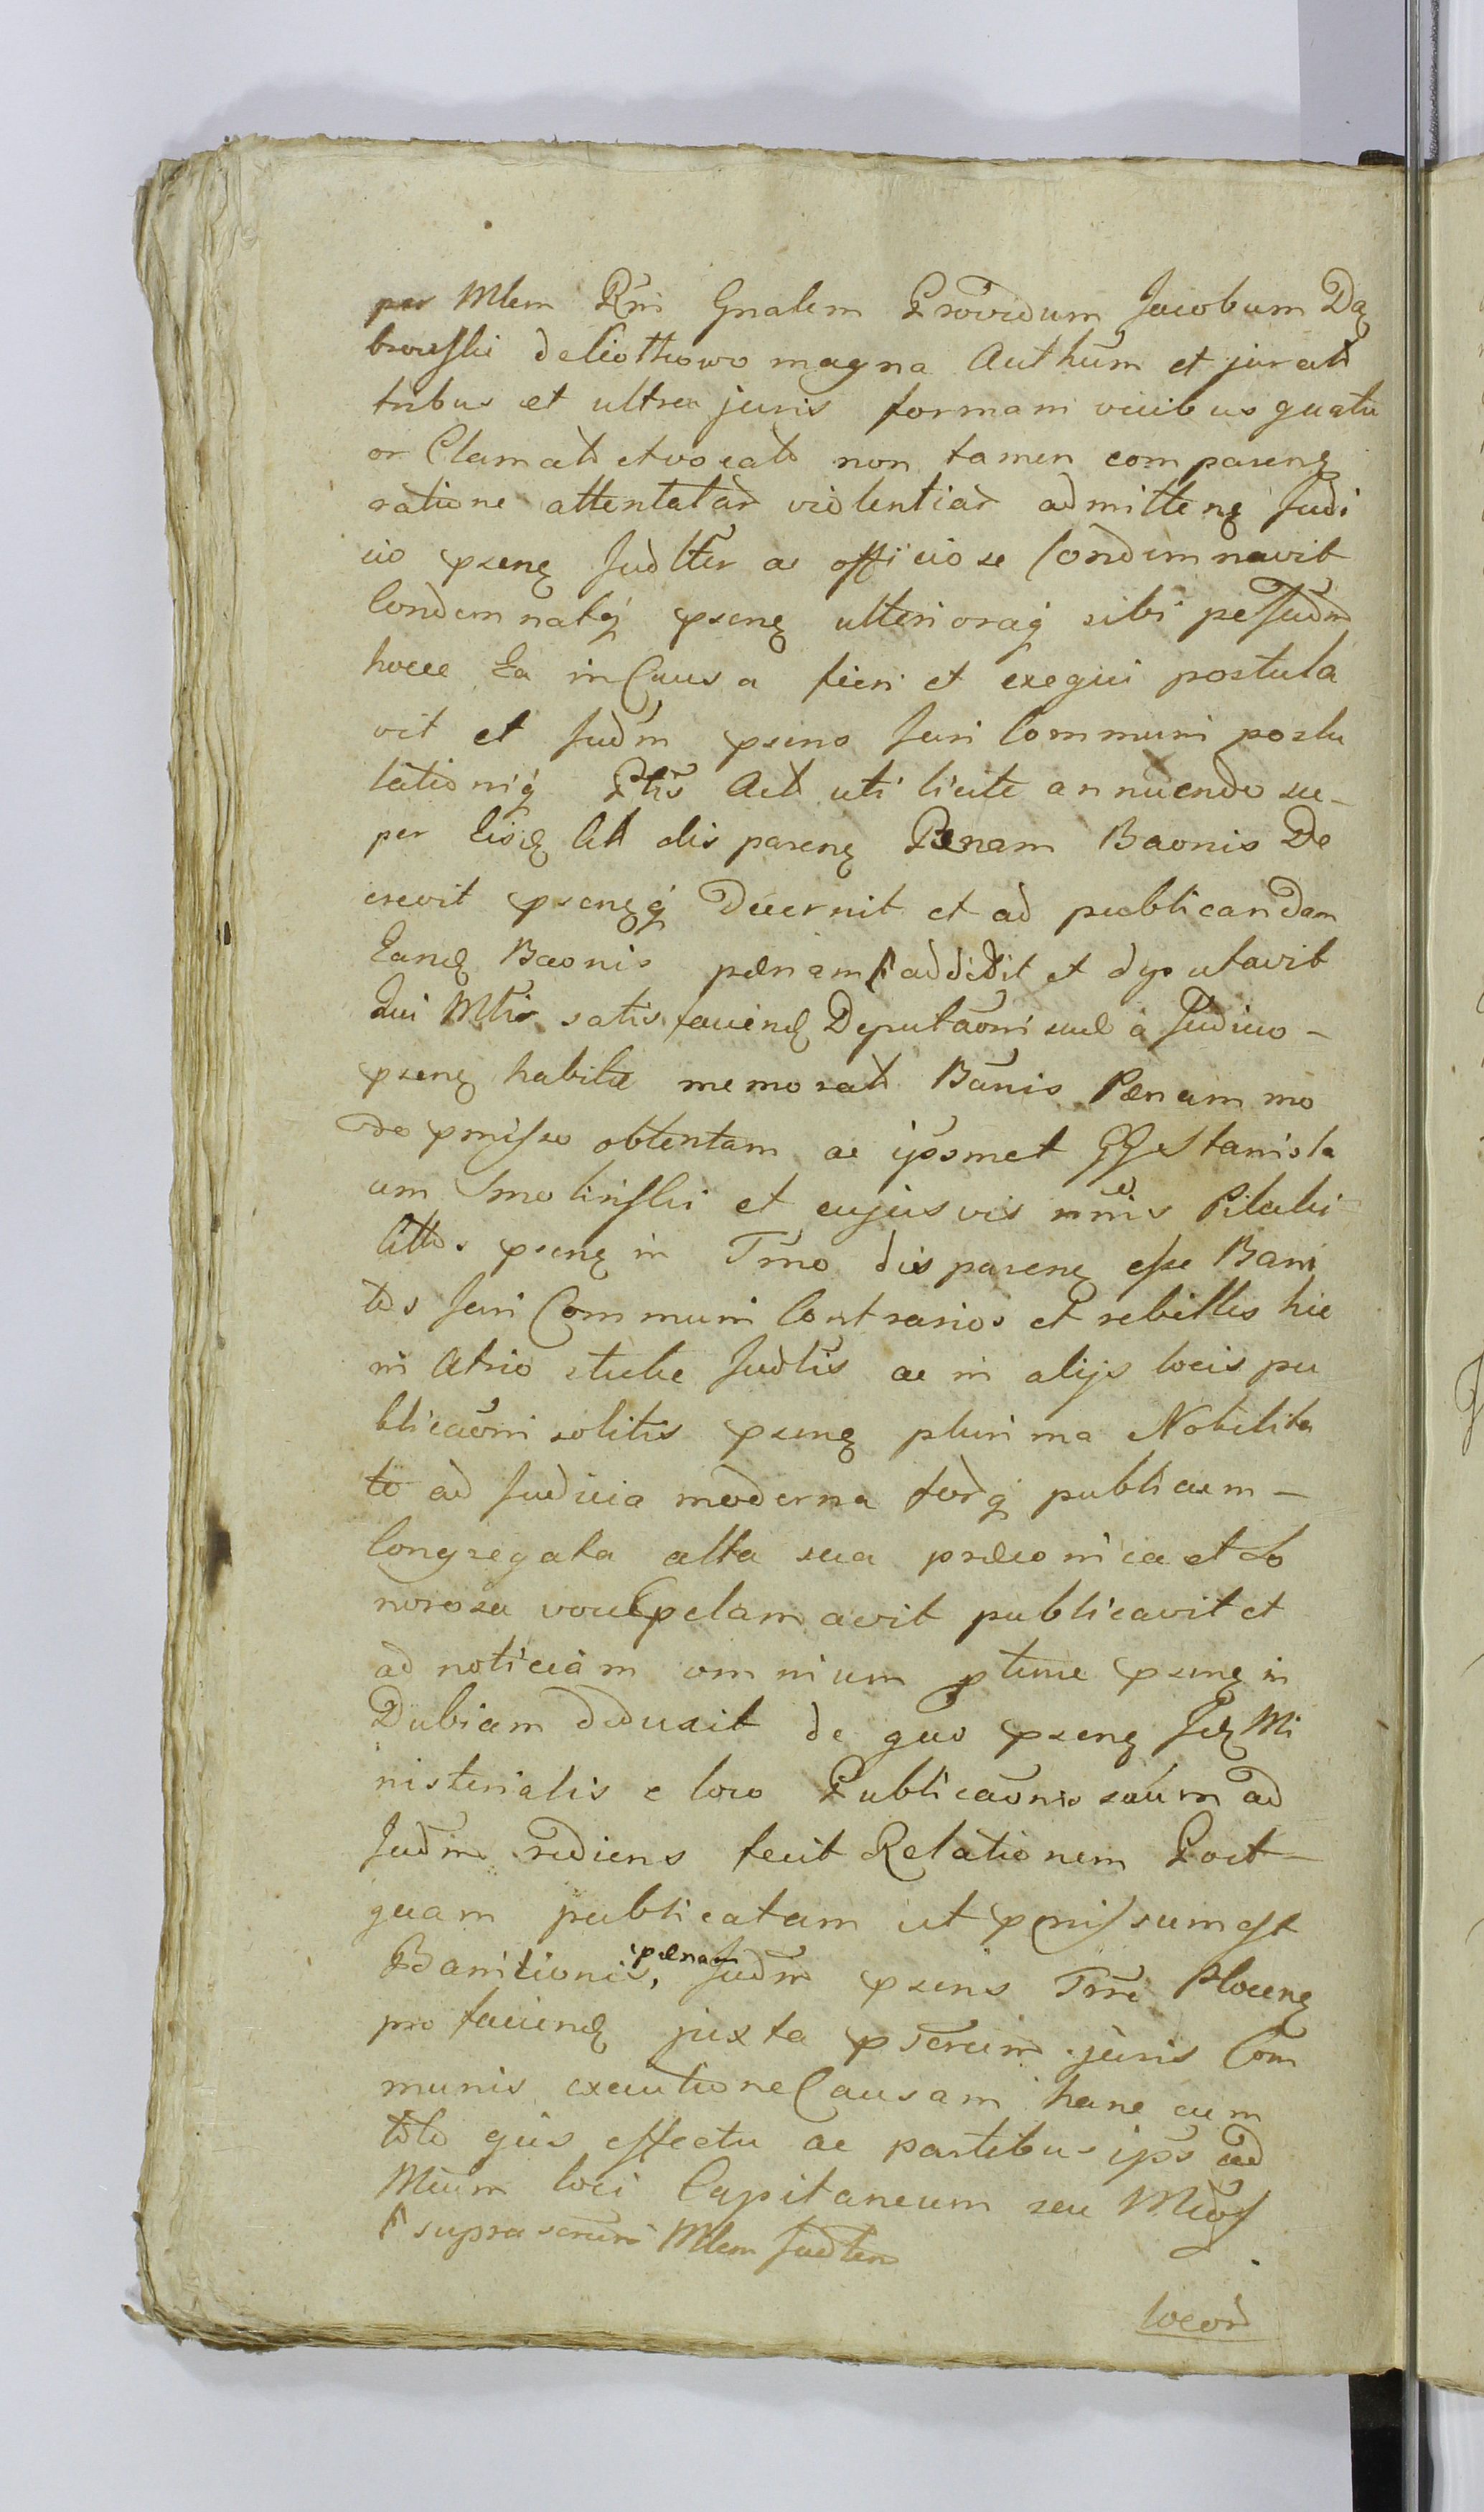 per Mlem Rñi Gnalem Providum Jacobum Dą
browski de Ciothowo magna Authum et jurat
tribus et ultra juris formam vicibus quatu
or Clamat et vocat non tamen comparenę
ratione attentatar violentiar admittenę Judi
cio psenę Judlter ac officiose Condemnavit
Condemnatq psenę ulterioraq sibi pe Judm
hocce Ea in Causa fieri et exequi postula
vit et Judm psens Juri Communi postu
lationiq Ptis Act uti licite annuendo su-
per Eisdę Citt disparenę Pænam Baonis De
crevit psenęq Decernit et ad publicandam
Eandę Baonis pænam addidit et deputavit
Qui Mlis satisfaciendę Deputaoni suæ a Judicio -
psenę habitæ memorat Banis Pænam mo
do pmisso obtentam ac ipsmet GG Stanisla
um Smolinski et cujusvis nnis Pilali
Cittos psenę in Tmo disparenę esse Bani
tos Juri Communi Contrarios et rebelles hic
in Atrio stubæ Judlis ac in alijs locis pu
blicaoni solitis psenę plurima Nobilita
te ad Judicia moderna forq publicum -
Congregata alta sua præconica et So
norosa voce pclamavit publicavit et
ad noticiam omnium ptime psenę in
Dubiam deduxit de quo psenę Jdę Mi
nisterialis e loco Publicaonis saum ad
Judm rediens fecit Relationem Post-
quam publicatam ut pmissum est
Banitionis, pænam Judm psens Tmre Plocenę
pro faciendę juxta pscrum juris Com
munis executione Causam hanc cum
toto ejus effectu ac partibus ips ad
Mcum loci Capitaneum seu Mcos
suprascrum Mlem Judlem
locor